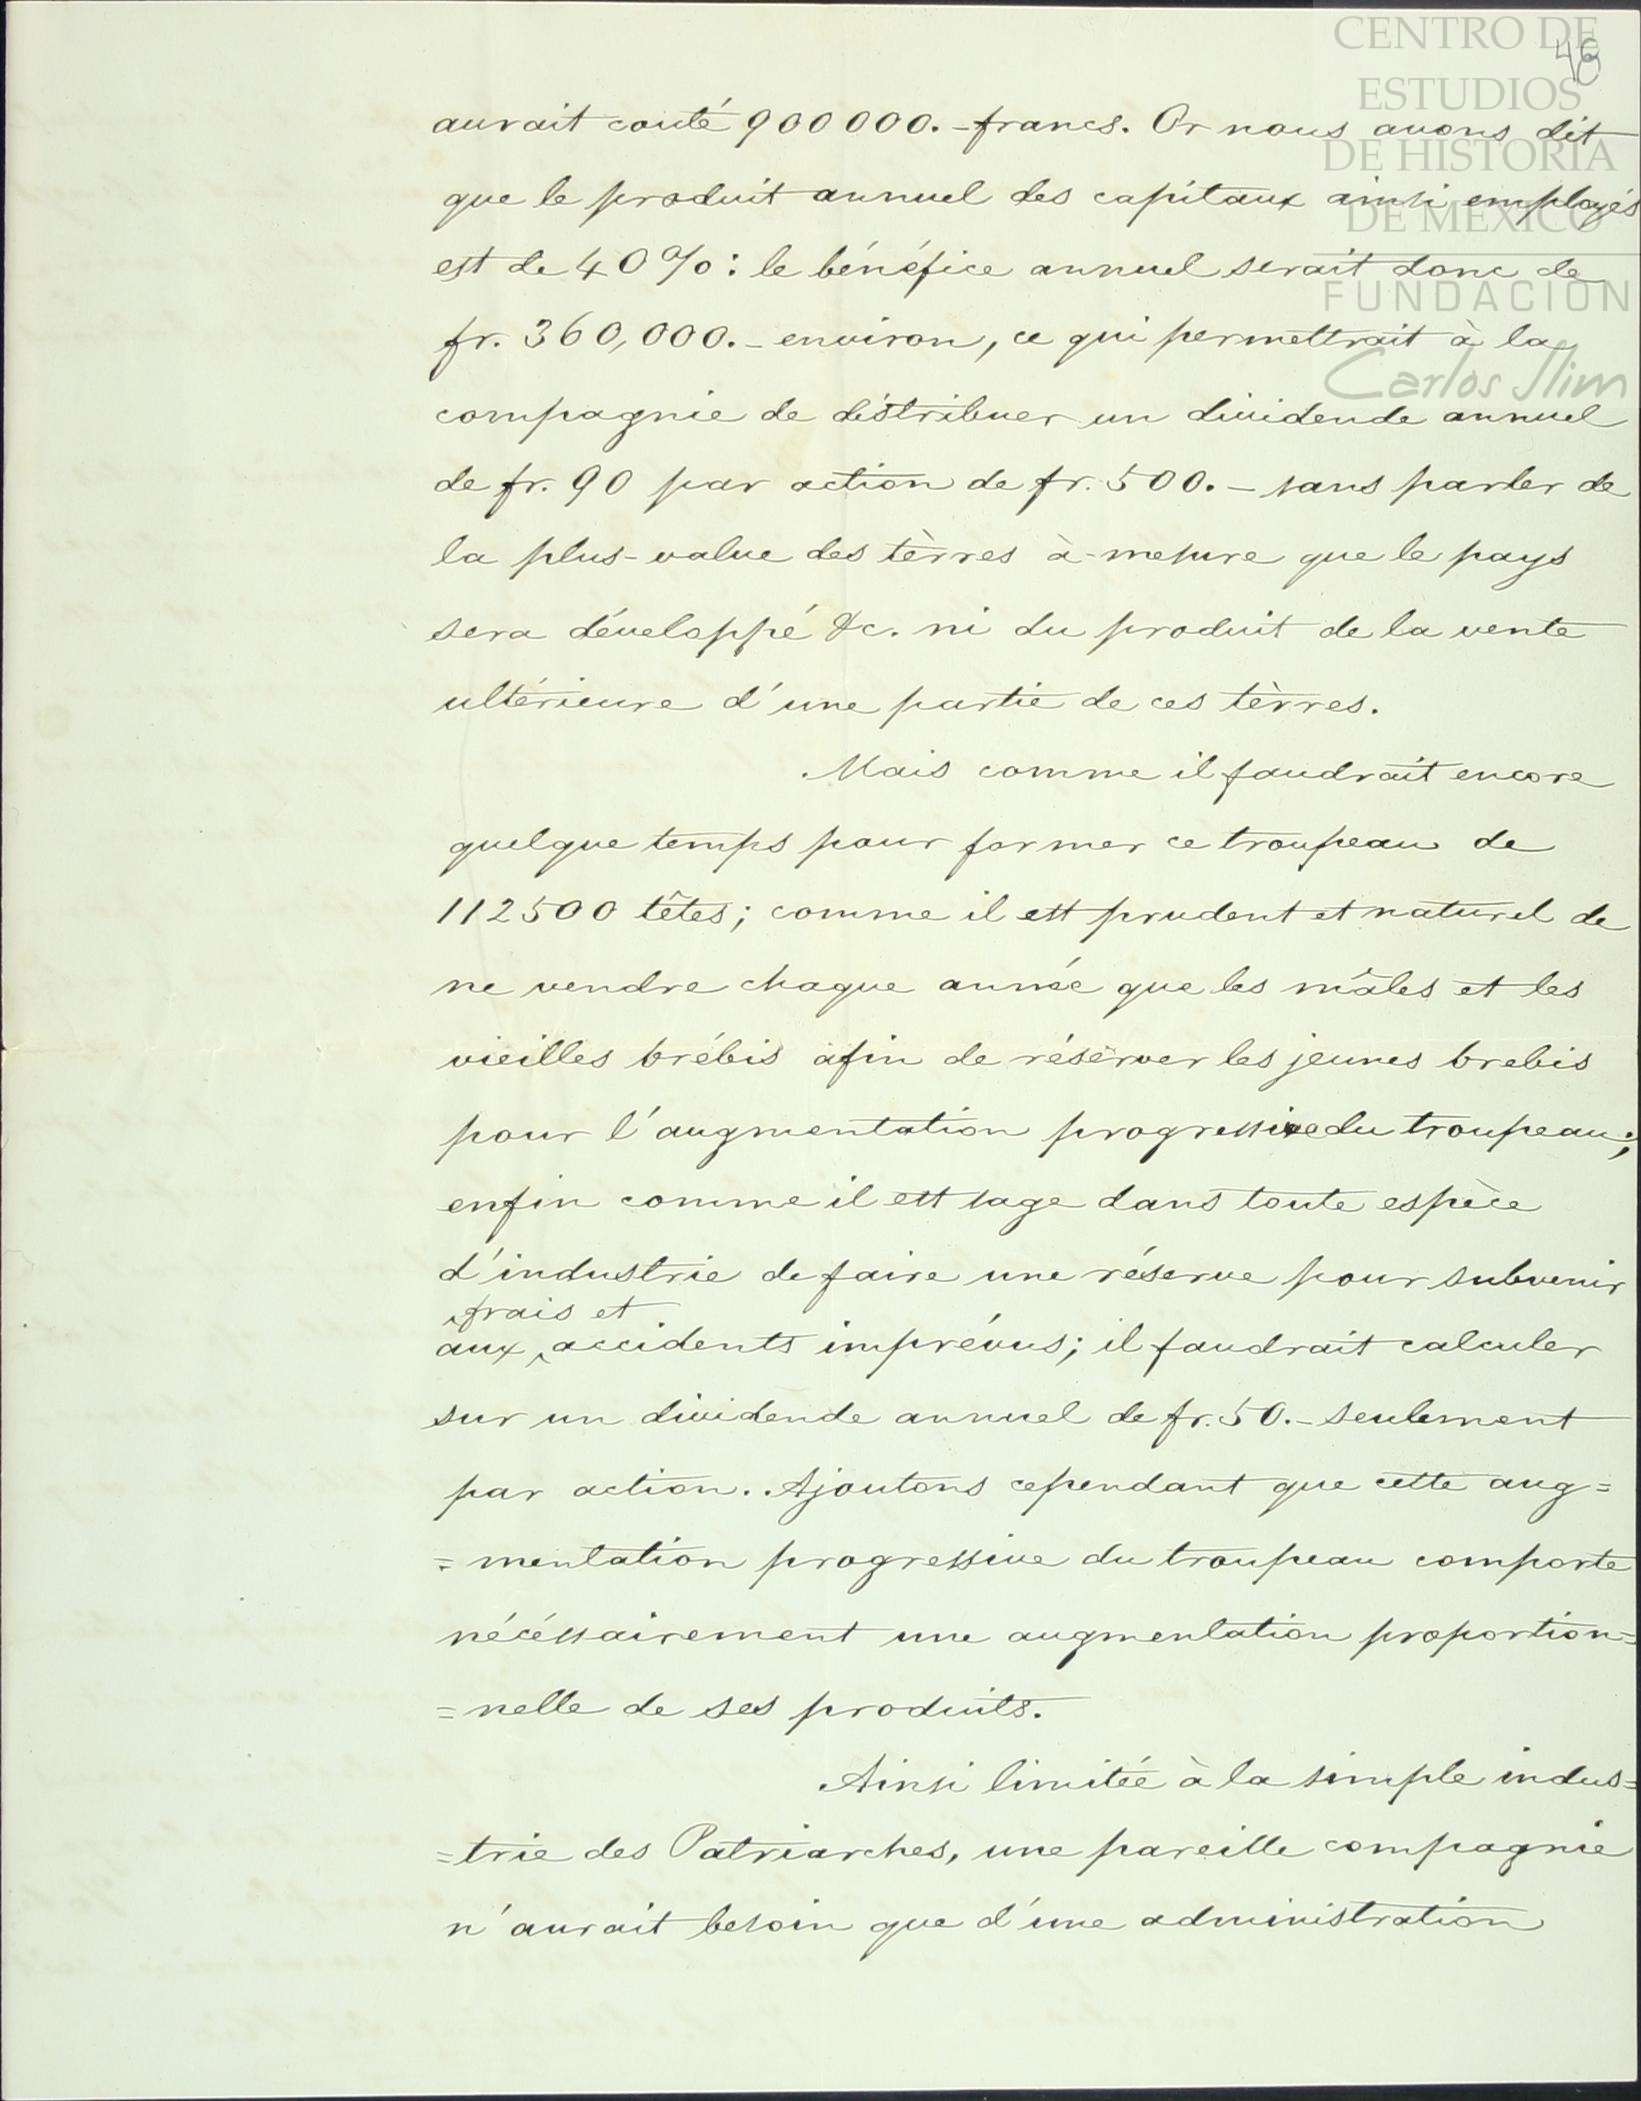 CENTRO DE
ESTUDIOS
DE HISTORIA
DE MEXICO
FUNDACION
Carlos Slim
aurait couté 900000.- francs. Or nous avons dit
que le produit annuel des capitaux ainsi employés
est de 40%: le bénéfice annuel serait donc de
fr. 360,000.- environ, ce qui permettrait à la
compagnie de distribuer un dividende annuel
de fr. 90 par action de fr. 500.- sans parler de
la plus-value des tèrres à-mesure que le pays
sera développé &c. ni du produit de la vente
ultérieure d'une partie de ces tèrres.
Mais comme il faudrait encore
quelque temps pour former ce troupeau de
112500 têtes; comme il est prudent et naturel de
ne vendre chaque année que les mâles et les
vieilles brébis afin de réserver les jeunes brebis
pour l'augmentation progressive du troupeau;
enfin comme il est sage dans toute espèce
d'industrie de faire une réserve pour subvenir
frais et
aux accidents imprévus; il faudrait calculer
sur un dividende annuel de fr. 50.- seulement
par action. Ajoutons cependant que cette aug=
=mentation progressive du troupeau comporte
nécéssairement une augmentation proportion=
=nelle de ses produits.
Ainsi limitée à la simple indus=
=trie des Patriarches, une pareille compagnie
n'aurait besoin que d'une administration